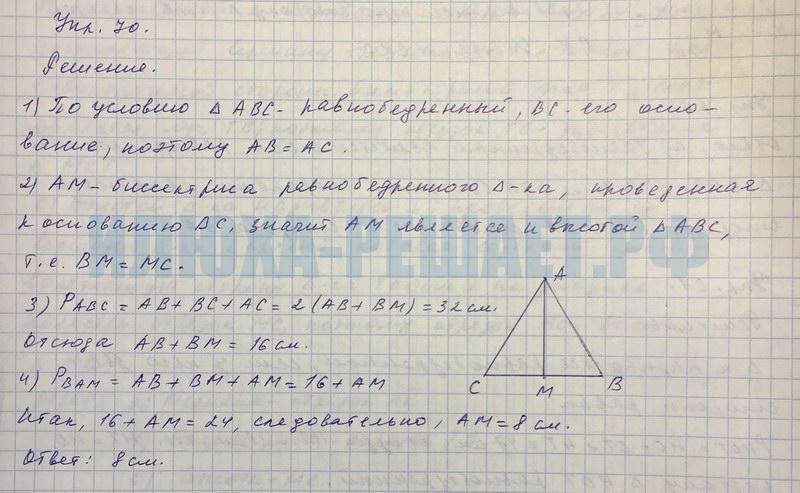 Упр. 70.
Решение.
1) По условию Δ ABC - равнобедренный, BC - его осно-
вание, поэтому AB = AC.
2) AM - биссектриса равнобедренного Δ-ка, проведенная
к основанию BC, значит AM является и высотой Δ ABC,
т.е. BM = MC.
ИЛЮХА-РЕШАЕТ.РФ
3) PABC = AB + BC + AC = 2 (AB + BM) = 32 см.
Отсюда AB + BM = 16 см.
4) PBAM = AB + BM + AM = 16 + AM
Итак, 16 + AM = 24, следовательно, AM = 8 см.
Ответ: 8 см.
A
C M B